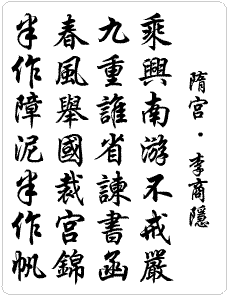 隋宫·李商隱
乘興南游不戒嚴
九重誰省諫書函
春風舉國裁宮錦
半作障泥半作帆